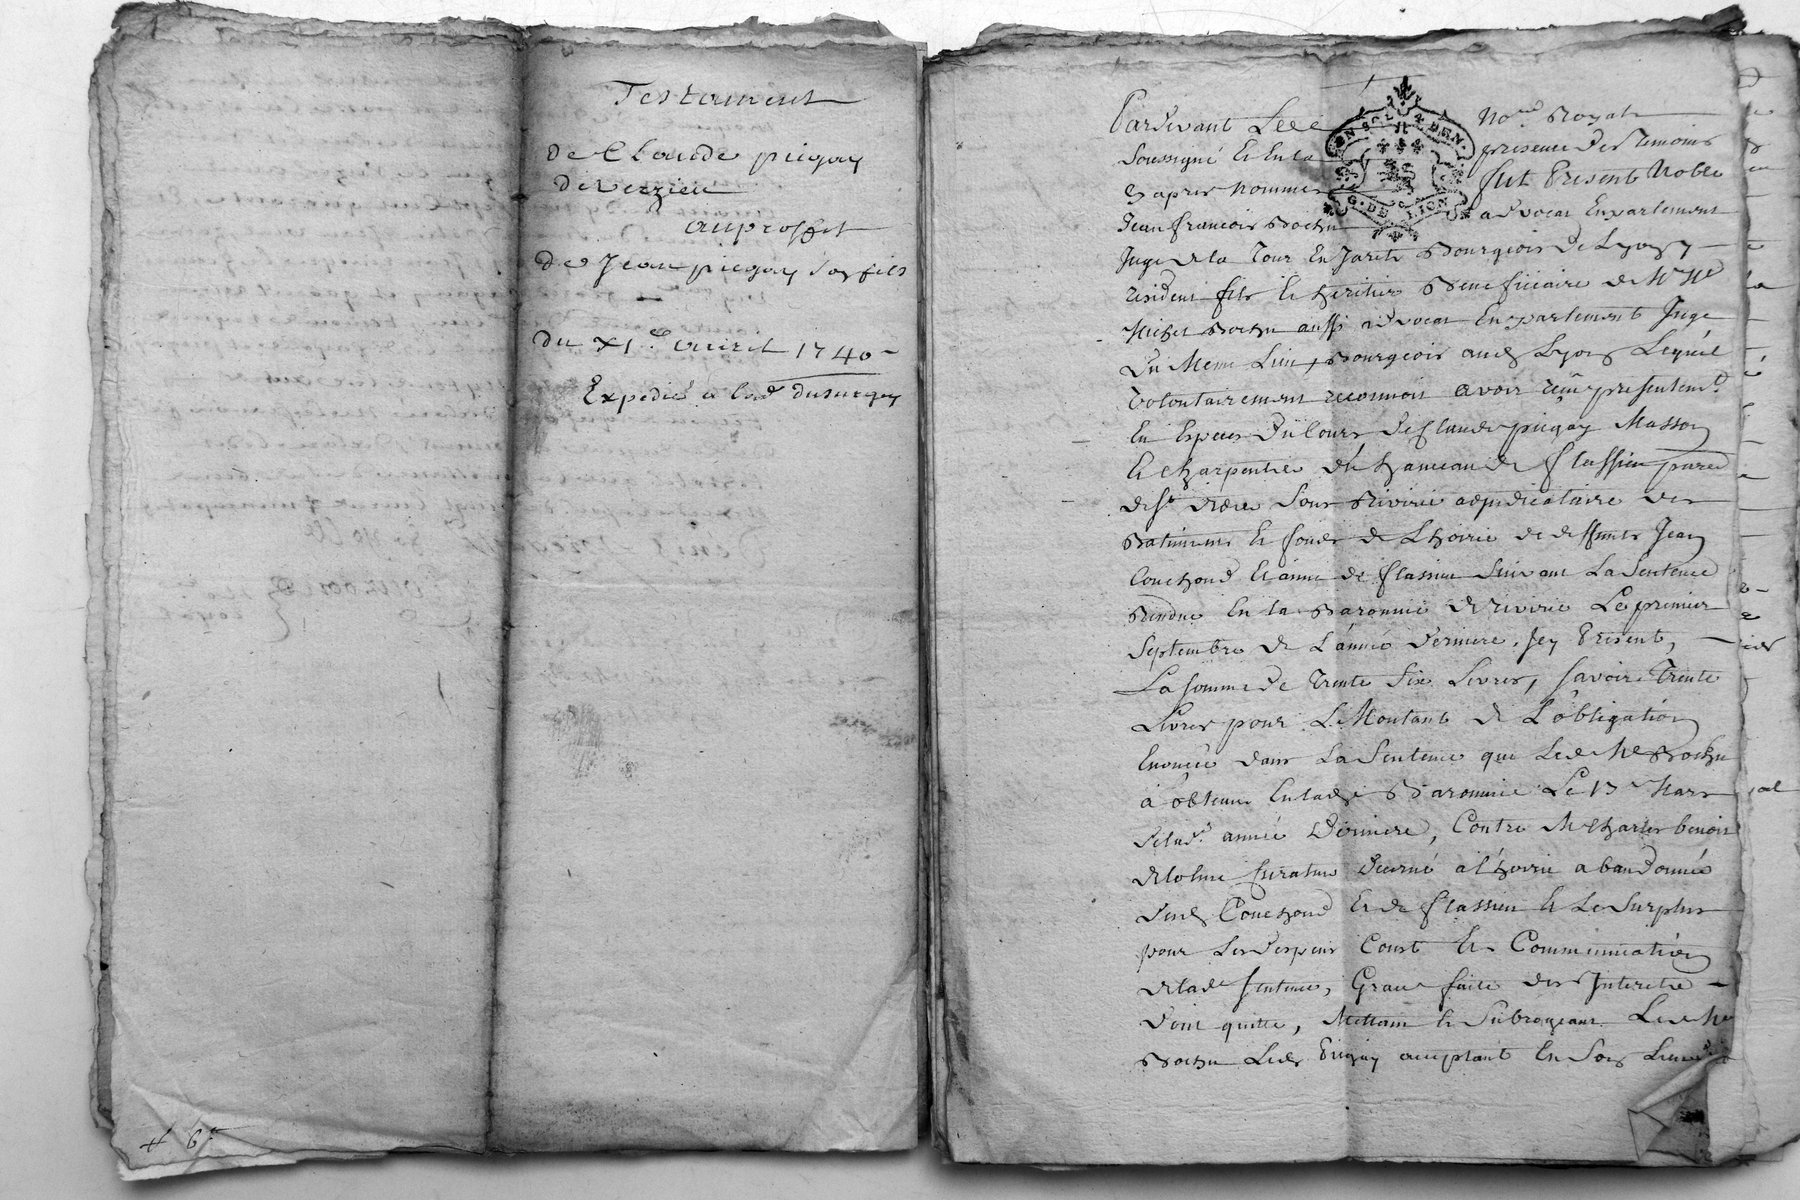 Testament
de Claude pigay
de verzieu
au proffit
de Jean pigay son fils
du XI.e avril 1740
Expedié a
# 6
Pardevant Le No.re Royal
Soussigné et En la presence des temoins
Cy apres nommes fut Present Noble
Jean francois Bochu advocat En parlement
Juge de la Tour En Jarets Bourgeois de Lyon y
resident fils et heritier Beneficiaire de
Michel Bochu aussi advocat En parlement Juge
du Meme Lieu, Bourgeois aud Lyon Lequel
volontairement reconnoit avoir reçu presentemt.
En Especes du Cours de Claude pigay Masson
et Charpentier du hameau de flassieu parr.
de St. didier sous Riverie adjudicataire des
Batiments et fonds de L'hoirie de deffunts Jean
Couchoud et anne de flassieu suivant La Sentence
Rendue En la Baronnie de Riverie Le premier
Septembre de L'année derniere, Icy Present,
La somme de Trente Six Livres, savoir Trente
Livres pour Le Montant de L'obligation
Enoncée dans La Sentence que Led Me Bochu
a obtenu En lade Baronnie Le 13 Mars
de lad. année derniere, Contre Me Charles benoit
curateur decerné a l'hoirie abandonnée
desd Couchoud et de flassieu et Le Surplus
pour Les despens Coust et Communication
de lade Sentence, Grace faite des Interets
dont quitte, Mettant et Subrogeant Led Me
Bochu Led Pigay acceptant En Son Lieu
G. DE LION